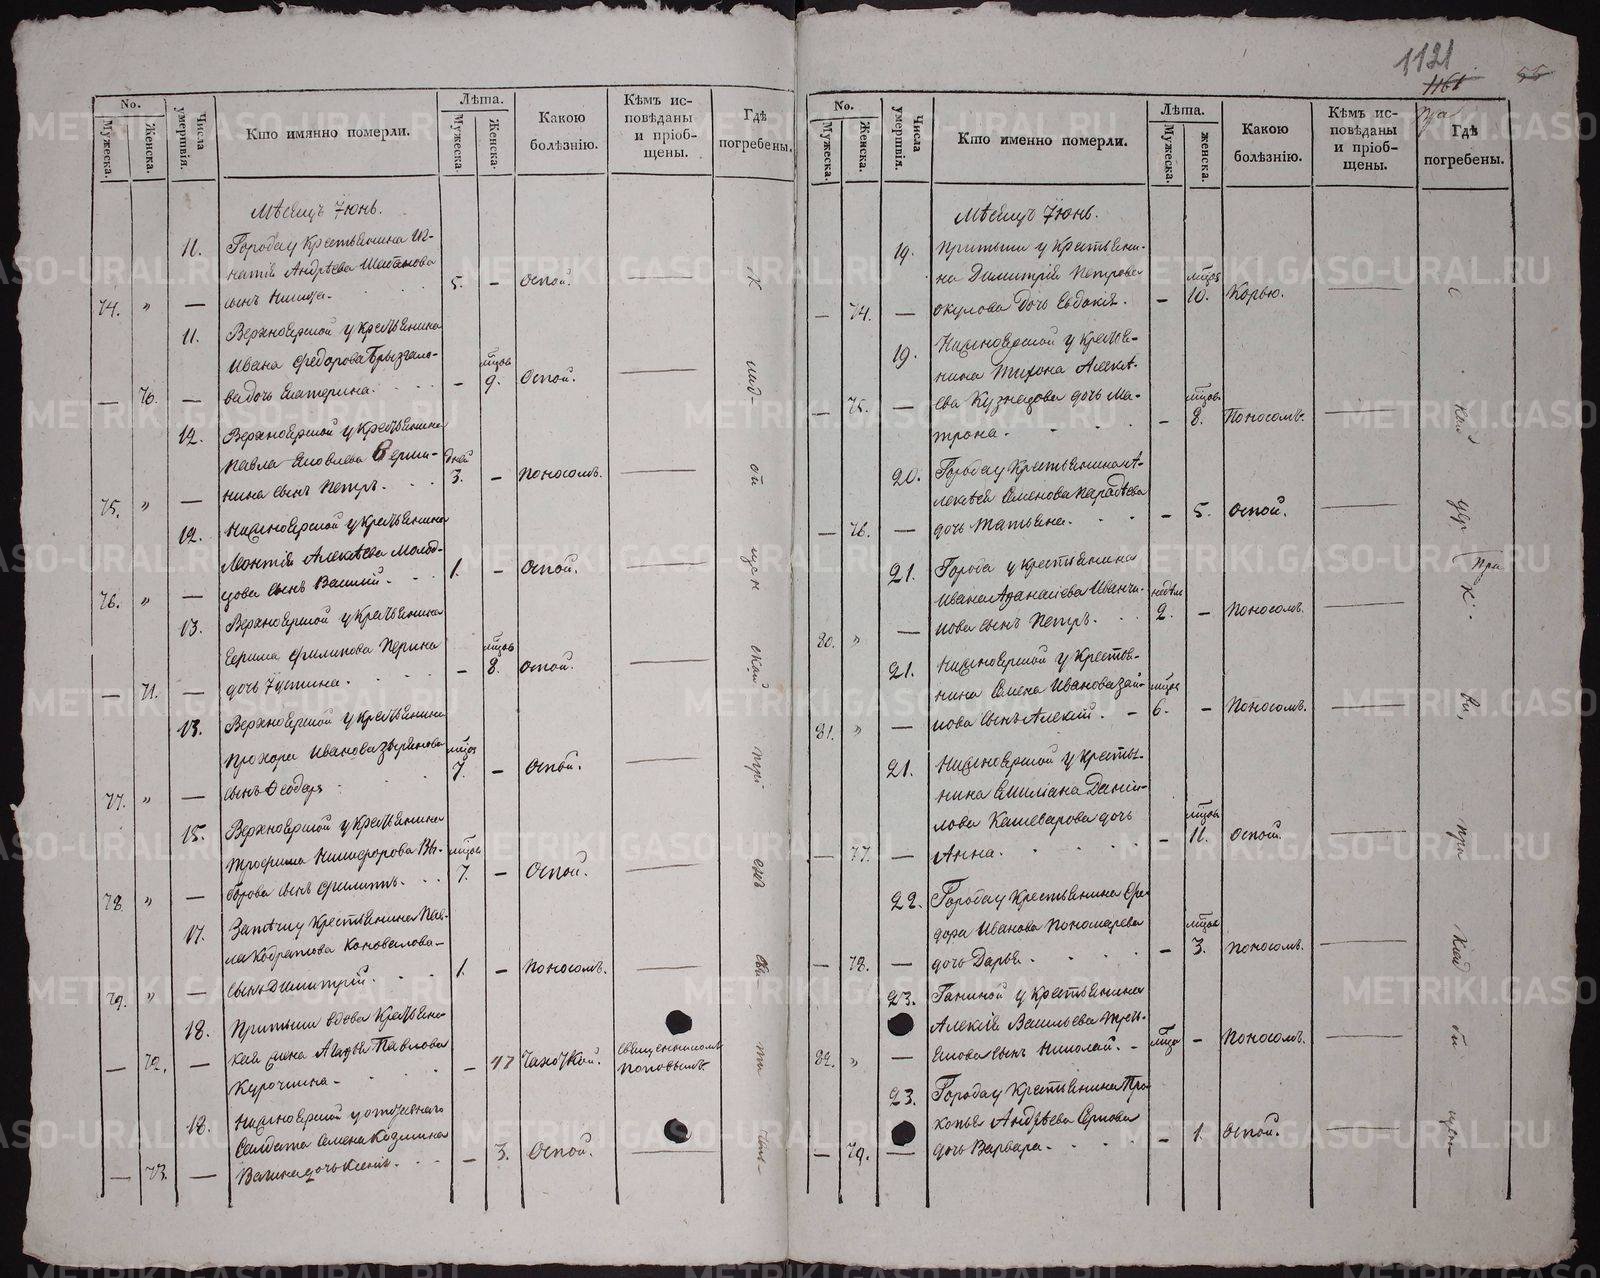 1121
1161
55
No.
Мужеска.
Женска.
Числа умертвія.
Кто имянно померли.
Лѣта.
Мужеска.
Женска.
Какою
болѣзнію.
Кѣмъ ис-
повѣданы
и пріоб-
щены.
Гдѣ
погребены.
Мѣсяцъ Іюнь.
11. Городау Крестьянина Иг-
натія Андрѣева Шестакова
74. " — сынъ Никита. 5. — Оспой.
11. Верхноярской у крестьянина
Ивана Федорова Брызгало-
— 70. — ва дочь Екатерина. — мѣцовъ 9. Оспой.
12. Верхноярской у крестьянина
Павла Яковлева Верши-
75. " — нина сынъ Петръ. дней 3. — Поносомъ.
12. Нижноярской у крестьянина
Леонтія Алексѣева Молод-
76. " — цова сынъ Василій. 1. — Оспой.
13. Верхноярской у крестьянина
Ефима Филипова Перина
— 71. — дочь Іустина. — мѣцовъ 8. оспой.
13. Верхноярской у крестьянина
Прохора Иванова Зырянова
77. " — сынъ Ѳеодоръ мѣцов 7. — Оспой.
15. Верхноярской у крестьянина
Трофима Никифорова Вы-
78. " — борова сынъ Филиппъ. мѣцовъ 7. — Оспой.
17. крестьянина Пав-
ла Кодратова Коновалова
79. " — сынъ Димитрій. 1. — Поносомъ.
18. Притыки вдова Крестьян-
— 72. — ская жена Агафья Павлова
Курочкина. — 47 Чахоткой. Священникомъ
Поповымъ.
18. Нижноярской у отставнаго
Солдата Семена Козмина
— 73. — Вагина дочь Ксенія. — 3. Оспой.
No.
Мужеска.
Женска.
Числа умертвія.
Кто именно померли.
Лѣта.
Мужеска.
женска.
Какою
болѣзнію.
Кѣмъ ис-
повѣданы
и пріоб-
щены.
Гдѣ
погребены.
Мѣсяцъ Іюнь.
19. Притыки у Крестьяни-
на Димитрія Петрова
— 74. — окулова дочь Евдокія. — мѣцов 10. Корью.
19. Нижноярской у Крестья-
нина Тихона Алексѣ-
— 75. — ева Кузнецова дочь Ма-
трона. — мѣцовъ 8. Поносомъ.
20. Городау Крестьянина А-
лексѣя Семенова Парадѣева
— 76. — дочь Татьяна. — 5. Оспой.
21. Города у крестьянина
Ивана Аѳанасіева Иванчи-
80. " — кова сынъ Петръ. недѣль 2. — Поносомъ.
21. Нижноярской у Крестья-
нина Семена Иванова Зай-
81. " — кова сынъ Алексій. мѣцов 6. — Поносомъ.
21. Нижноярской у Крестья-
нина Емиліана Даній-
лова Кашеварова дочь
— 77. — Анна. — мѣцовъ 11. Оспой.
22. Городау Крестьянина Фе-
дора Иванова Пономарева
— 78. — дочь Дарья. — мѣцов 3. поносомъ.
23. Ганиной у Крестьянина
Алексія Васильева
82. " — сынъ Николай. мѣца — Поносомъ.
23. Городау Крестьянина Про-
копья Андрѣева Серкова
— 79. — дочь Варвара. — 1. Оспой.